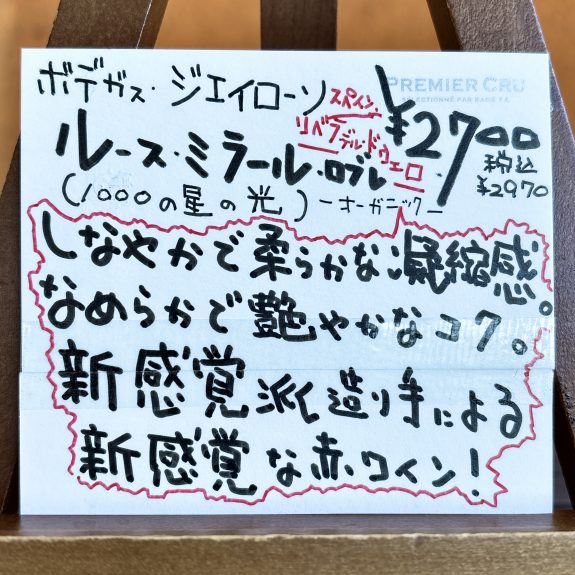 ボデガス・ジェイローソ
スペイン
リベラ・デル・ドゥエロ
PREMIER CRU
SELECTIONNÉ PAR
¥2700
税込
¥2970
ルース・ミラール・ロブレ
(1000の星の光)
-オーガニック-
しなやかで柔らかな凝縮感。
なめらかで艶やかなコク。
新感覚派造り手による
新感覚な赤ワイン!